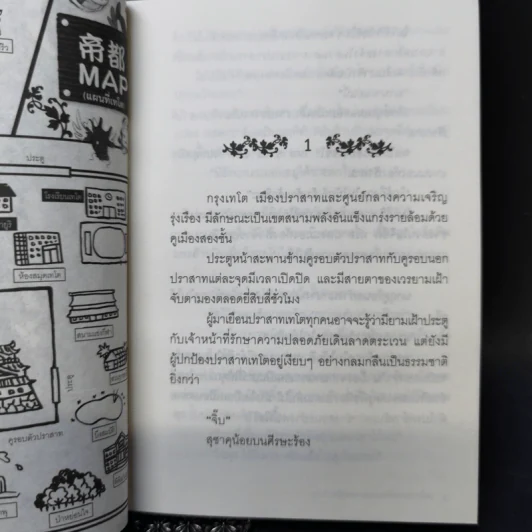 帝都
MAP
(แผนที่เทโต)
ประตู
โรงเรียนเทโต
ห้องสมุดเทโต
ประตู
คูรอบตัวปราสาท
1
กรุงเทโต เมืองปราสาทและศูนย์กลางความเจริญ
รุ่งเรือง มีลักษณะเป็นเขตสนามพลังอันแข็งแกร่งรายล้อมด้วย
คูเมืองสองชั้น
ประตูหน้าสะพานข้ามคูรอบตัวปราสาทกับคูรอบนอก
ปราสาทแต่ละจุดมีเวลาเปิดปิด และมีสายตาของเวรยามเฝ้า
จับตามองตลอดยี่สิบสี่ชั่วโมง
ผู้มาเยือนปราสาทเทโตทุกคนอาจจะรู้ว่ามียามเฝ้าประตู
กับเจ้าหน้าที่รักษาความปลอดภัยเดินลาดตระเวน แต่ยังมี
ผู้ปกป้องปราสาทเทโตอยู่เงียบๆ อย่างกลมกลืนเป็นธรรมชาติ
ยิ่งกว่า
“จิ๊บ”
สุซาคุน้อยบนศีรษะร้อง